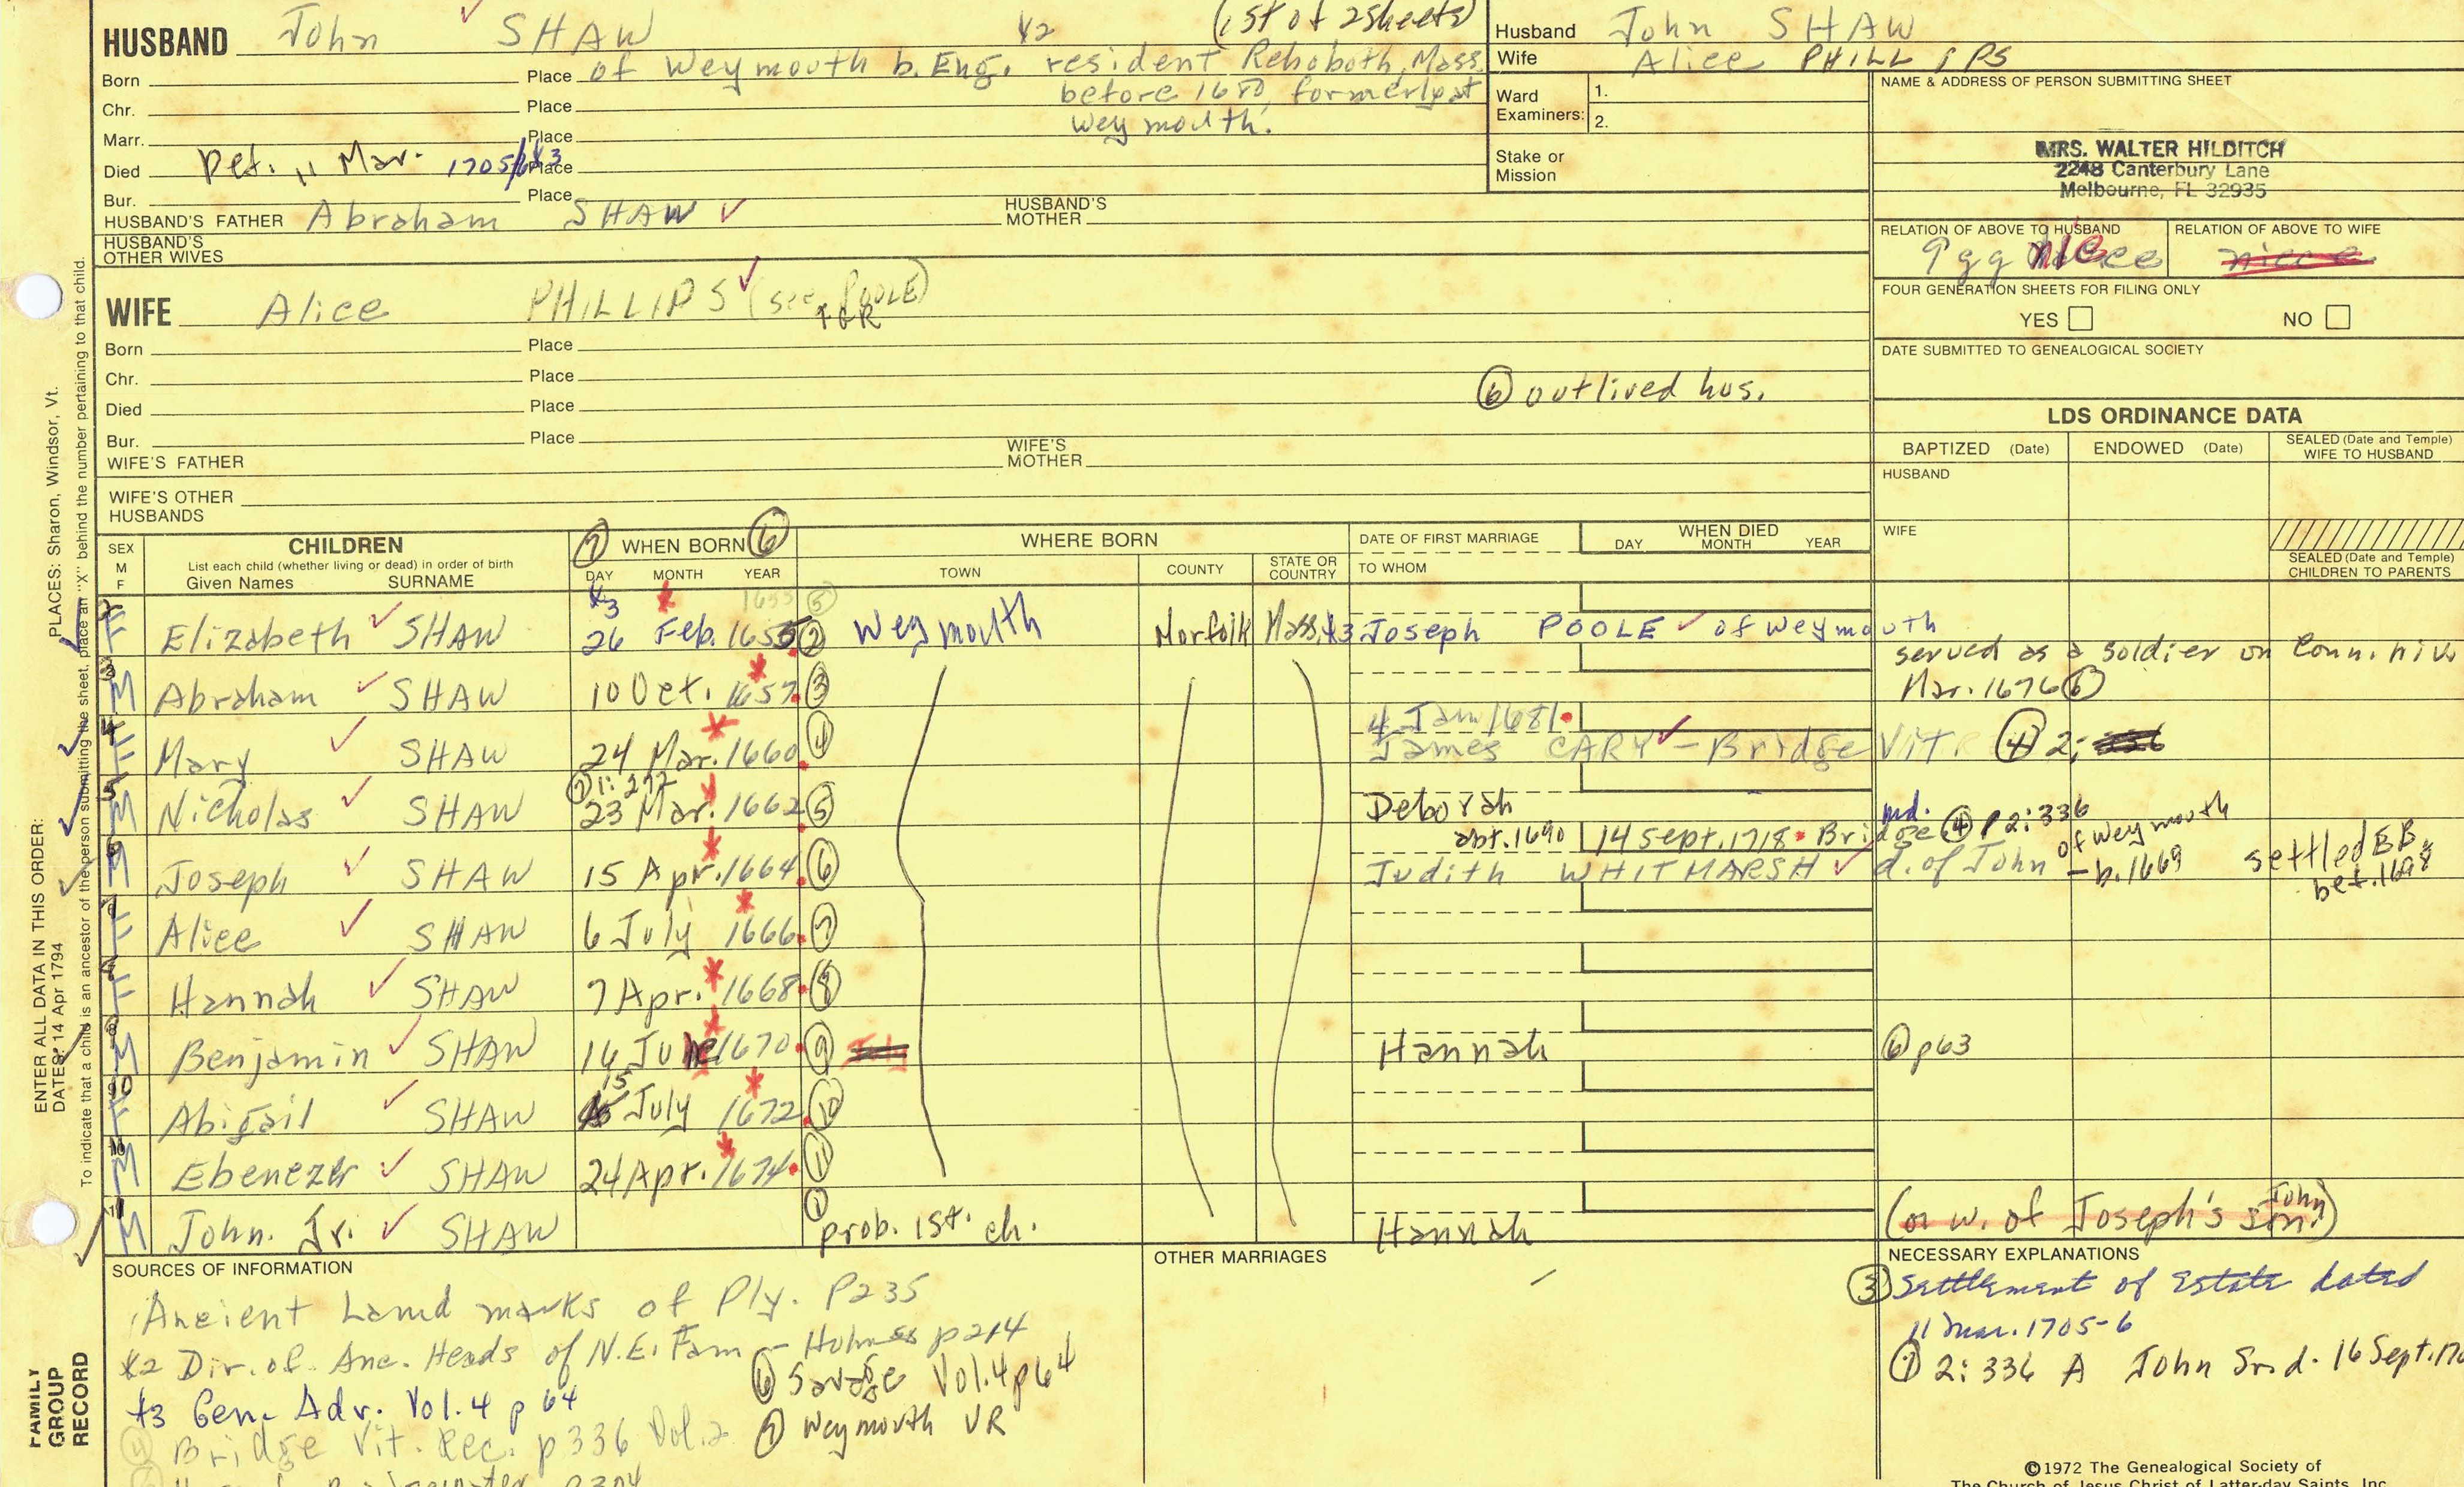 HUSBAND John SHAW *2 (1st of 2 sheets)
Born Place of Weymouth b. Eng. resident Rehoboth, Mass.
Chr. Place before 1680, formerly at
Marr. Place Weymouth.
Died Det. 11 Mar. 1705/6 *3 Place
Bur. Place
HUSBAND'S FATHER Abraham SHAW HUSBAND'S MOTHER
HUSBAND'S OTHER WIVES
WIFE Alice PHILLIPS (see POOLE)
Born Place
Chr. Place
Died Place
⑥ outlived hus.
Bur. Place
WIFE'S FATHER WIFE'S MOTHER
WIFE'S OTHER HUSBANDS
Husband John SHAW
Wife Alice PHILLIPS
Ward Examiners: 1.
2.
Stake or Mission
NAME & ADDRESS OF PERSON SUBMITTING SHEET
MRS. WALTER HILDITCH
2248 Canterbury Lane
Melbourne, FL 32935
RELATION OF ABOVE TO HUSBAND RELATION OF ABOVE TO WIFE
ggg niece niece
FOUR GENERATION SHEETS FOR FILING ONLY
YES NO
DATE SUBMITTED TO GENEALOGICAL SOCIETY
LDS ORDINANCE DATA
BAPTIZED (Date) ENDOWED (Date) SEALED (Date and Temple) WIFE TO HUSBAND
HUSBAND
WIFE
SEALED (Date and Temple) CHILDREN TO PARENTS
SEX M F
CHILDREN
List each child (whether living or dead) in order of birth
Given Names SURNAME
⑦ WHEN BORN ⑥
DAY MONTH YEAR
WHERE BORN
TOWN COUNTY STATE OR COUNTRY
DATE OF FIRST MARRIAGE
TO WHOM
WHEN DIED
DAY MONTH YEAR
*3 1655 ⑤
2 F Elizabeth SHAW 26 Feb. 1655 ② Weymouth Norfolk Mass. *3 Joseph POOLE of Weymouth
served as a soldier on Conn. riv
3 M Abraham SHAW 10 Oct. 1657 ③ Mar. 1676 ⑥
4 Jan 1681
4 F Mary SHAW 24 Mar. 1660 ④ James CARY - Bridge Vit. ④ 2:
② 1:277
5 M Nicholas SHAW 23 Mar. 1662 ⑤ Deborah
abt. 1690 14 Sept. 1718 Bridge ④ p 2:336
M Joseph SHAW 15 Apr. 1664 ⑥ Judith WHITMARSH d. of John of Weymouth - b. 1669 settled E B. bef. 1698
F Alice SHAW 6 July 1666 ⑦
F Hannah SHAW 7 Apr. 1668 ⑧
M Benjamin SHAW 16 June 1670 ⑨ Hannah ⑥ p63
10 F Abigail SHAW 15 July 1672 ⑩
M Ebenezer SHAW 24 Apr. 1674 ⑪
M John. Jr. SHAW ① prob. 1st. ch. Hannah (or w. of Joseph's son John)
SOURCES OF INFORMATION
Ancient Land marks of Ply. P235
*2 Dir. of Anc. Heads of N.E. Fam - Holmes p 214
⑥ Savage Vol. 4 p 64
*3 Gen. Adv. Vol. 4 p 64
⑦ Weymouth VR
④ Bridge Vit. Rec. p 336 Vol. 2
OTHER MARRIAGES
NECESSARY EXPLANATIONS
③ Settlement of Estate dated
11 Mar. 1705-6
⑦ 2:336 A John Sr. d. 16 Sept. 170
©1972 The Genealogical Society of
The Church of Jesus Christ of Latter-day Saints, Inc.
PLACES: Sharon, Windsor, Vt.
ENTER ALL DATA IN THIS ORDER:
DATES: 14 Apr 1794
To indicate that a child is an ancestor of the person submitting the sheet, place an "X" behind the number pertaining to that child.
FAMILY
GROUP
RECORD